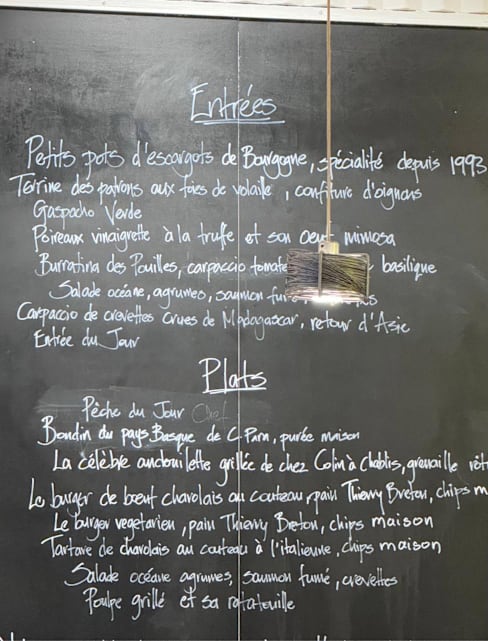 Entrées
Petits pots d'escargots de Bourgogne, spécialité depuis 1993
Terrine des patrons aux foies de volaille, confiture d'oignons
Gaspacho Verde
Poireaux vinaigrette à la truffe et son oeuf mimosa
Burratina des Pouilles, carpaccio tomate basilique
Salade océane, agrumes, saumon
Carpaccio de crevettes crues de Madagascar, retour d'Asie
Entrée du Jour
Plats
Pêche du Jour Chef
Boudin du pays Basque de C. Parra, purée maison
La célèbre andouillette grillée de chez Colin à Chablis, grenaille
Le burger de boeuf charolais au couteau, pain Thierry Breton, chips m
Le burger vegetarien, pain Thierry Breton, chips maison
Tartare de charolais au couteau à l'italienne, chips maison
Salade océane agrumes, saumon fumé, crevettes
Poulpe grillé et sa ratatouille